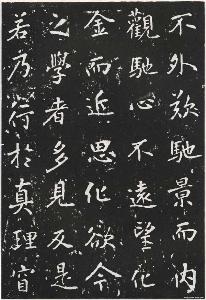 不外欻馳景而内
觀馳心不遠望化
金而近思化欲今
之學者多見反是
若乃符於真理宜